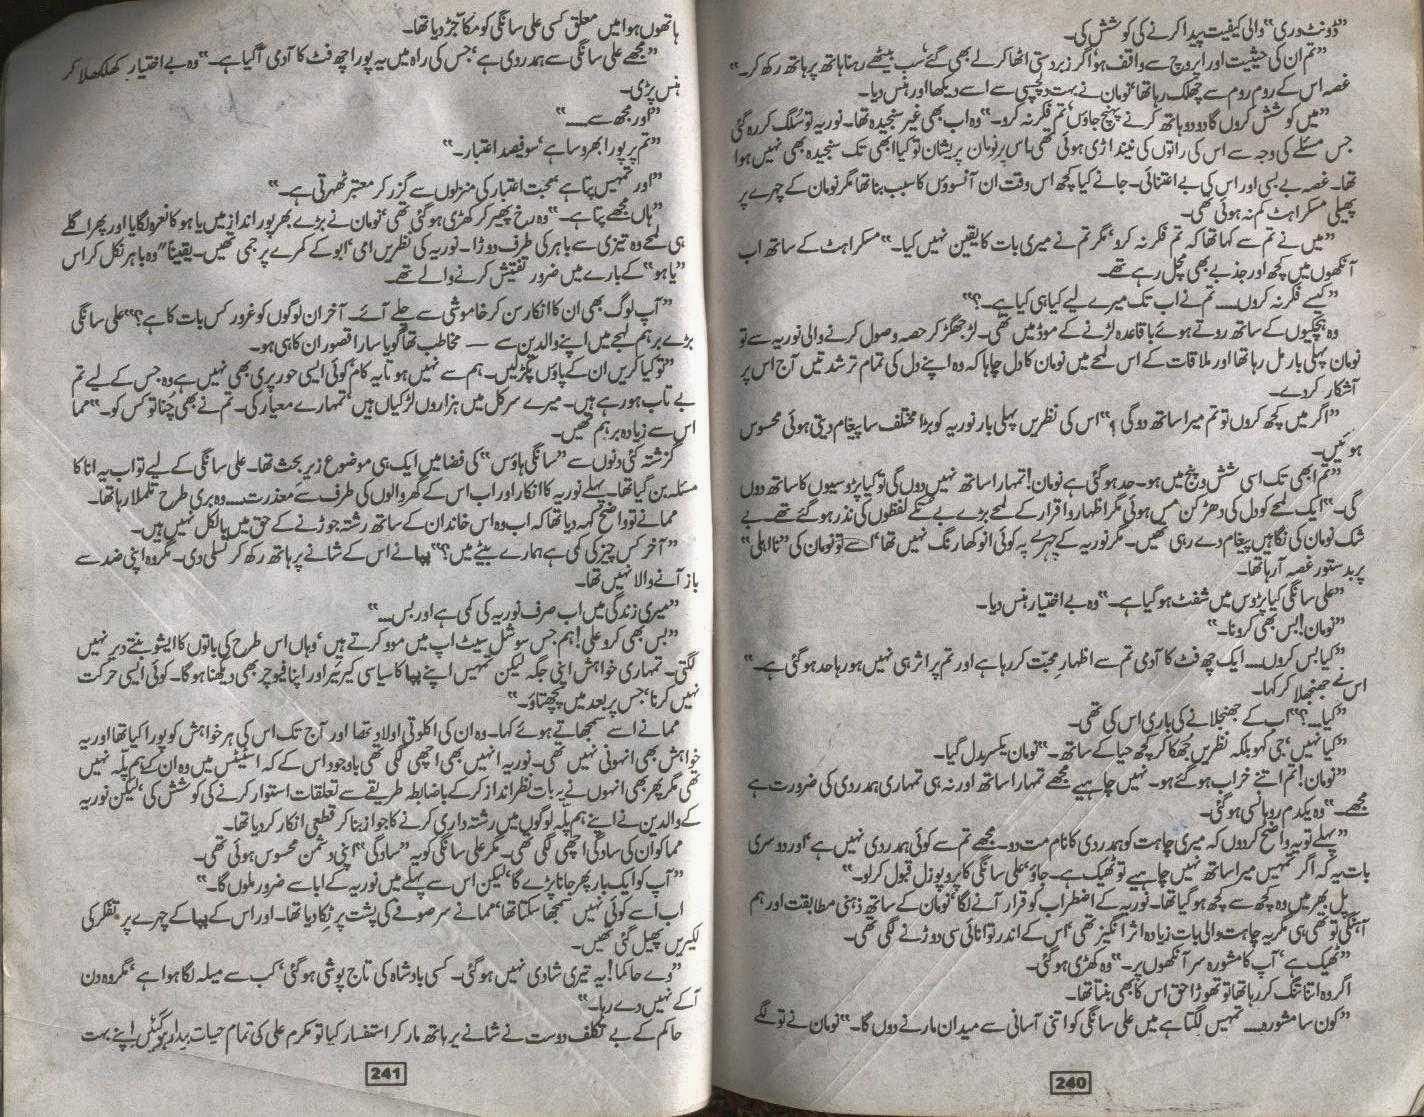 ”ڈونٹ وری“ والی کیفیت پیدا کرنے کی کوشش کی۔
”تم ان کی حیثیت اور اپروچ سے واقف ہو اگر زبردستی اٹھا کر لے بھی گئے‘ سب بیٹھے رہنا ہاتھ پر ہاتھ رکھ کر۔“
غصہ اس کے روم روم سے چھلک رہا تھا‘ نومان نے بہت دلچسپی سے اسے دیکھا اور ہنس دیا۔
”میں کوشش کروں گا دو دو ہاتھ کرنے پہنچ جاؤں‘ تم فکر نہ کرو۔“ وہ اب بھی غیر سنجیدہ تھا۔ نوریہ تو سُلگ کر رہ گئی
جس مسئلے کی وجہ سے اس کی راتوں کی نیند اڑی ہوئی تھی‘ اس پر نومان پریشان تو کیا ابھی تک سنجیدہ بھی نہیں ہوا
تھا۔ غصہ بے بسی اور اس کی بے اعتنائی۔ جانے کیا کچھ اس وقت ان آنسوؤں کا سبب بنا تھا مگر نومان کے چہرے پر
پھیلی مسکراہٹ کم نہ ہوئی تھی۔
”میں نے تم سے کہا تھا کہ تم فکر نہ کرو‘ مگر تم نے میری بات کا یقین نہیں کیا۔“ مسکراہٹ کے ساتھ اب
آنکھوں میں کچھ اور جذبے بھی مچل رہے تھے۔
”کیسے فکر نہ کروں.... تم نے اب تک میرے لیے کیا ہی کیا ہے۔؟“
وہ ہچکیوں کے ساتھ روتے ہوئے باقاعدہ لڑنے کے موڈ میں تھی۔ لڑ جھگڑ کر حصہ وصول کرنے والی نوریہ سے تو
نومان پہلی بار مل رہا تھا اور ملاقات کے اس لمحے میں نومان کا دل چاہا کہ وہ اپنے دل کی تمام تر شدتیں آج اس پر
آشکار کر دے۔
”اگر میں کچھ کروں تو تم میرا ساتھ دو گی؟“ اس کی نظریں پہلی بار نوریہ کو بڑا مختلف سا پیغام دیتی ہوئی محسوس
ہوئیں۔
”تم ابھی تک اسی شش و پنج میں ہو۔ حد ہو گئی ہے نومان! تمہارا ساتھ نہیں دوں گی تو کیا پڑوسیوں کا ساتھ دوں
گی۔“ ایک لمحے کو دل کی دھڑکن مس ہوئی مگر اظہار و اقرار کے لمحے بڑے بے تُکے لفظوں کی نذر ہو گئے تھے۔ بے
شک نومان کی نگاہیں پیغام دے رہی تھیں۔ مگر نوریہ کے چہرے پہ کوئی انوکھا رنگ نہیں تھا‘ اسے تو نومان کی ”نا اہلی“
پر بدستور غصہ آ رہا تھا۔
”علی سانگی کیا پڑوس میں شفٹ ہو گیا ہے۔“ وہ بے اختیار ہنس دیا۔
”نومان! بس بھی کرو نا۔“
”کیا بس کروں.... ایک چھ فٹ کا آدمی تم سے اظہارِ محبّت کر رہا ہے اور تم پر اثر ہی نہیں ہو رہا حد ہو گئی ہے۔“
اس نے جھنجھلا کر کہا۔
”کیا...؟“ اب کے جھنجلانے کی باری اس کی تھی۔
”کیا نہیں‘ جی کہو بلکہ نظریں جُھکا کر کچھ حیا کے ساتھ۔“ نومان یکسر بدل گیا۔
”نومان! تم اتنے خراب ہو گئے ہو۔ نہیں چاہیے مجھے تمہارا ساتھ اور نہ ہی تمہاری ہمدردی کی ضرورت ہے
مجھے۔“ وہ یکدم روہانسی ہو گئی۔
”پہلے تو یہ واضح کر دوں کہ میری چاہت کو ہمدردی کا نام مت دو۔ مجھے تم سے کوئی ہمدردی نہیں ہے‘ اور دوسری
بات یہ کہ اگر تمہیں میرا ساتھ نہیں چاہیے تو ٹھیک ہے۔ جاؤ‘ علی سانگی کا پروپوزل قبول کر لو۔“
پل بھر میں وہ کچھ سے کچھ ہو گیا تھا۔ نوریہ کے اضطراب کو قرار آنے لگا‘ نومان کے ساتھ ذہنی مطابقت اور ہم
آہنگی تو تھی ہی مگر یہ چاہت والی بات زیادہ اثر انگیز تھی‘ اس کے اندر توانائی سی دوڑنے لگی تھی۔
”ٹھیک ہے‘ آپ کا مشورہ سر آنکھوں پر۔“ وہ کھڑی ہو گئی۔
اگر وہ اتنا تنگ کر رہا تھا تو تھوڑا حق اس کا بھی بنتا تھا۔
”کون سا مشورہ.... تمہیں لگتا ہے میں علی سانگی کو اتنی آسانی سے میدان مارنے دوں گا۔“ نومان نے تو لگے
240
ہاتھوں ہوا میں معلق کسی علی سانگی کو مکا جڑ دیا تھا۔
”مجھے علی سانگی سے ہمدردی ہے‘ جس کی راہ میں یہ پورا چھ فٹ کا آدمی آ گیا ہے۔“ وہ بے اختیار کھلکھلا کر
ہنس پڑی۔
”اور مجھ سے....“
”تم پر پورا بھروسا ہے‘ سو فیصد اعتبار۔“
”اور تمہیں پتا ہے‘ محبت اعتبار کی منزلوں سے گزر کر معتبر ٹھہرتی ہے۔“
”ہاں مجھے پتا ہے۔“ وہ رخ پھیر کر کھڑی ہو گئی تھی‘ نومان نے بڑے بھرپور انداز میں یاہو کا نعرہ لگایا اور پھر اگلے
ہی لمحے وہ تیزی سے باہر کی طرف دوڑا۔ نوریہ کی نظریں امی‘ ابو کے کمرے پر جمی تھیں۔ یقیناً وہ باہر نکل کر اس
”یاہو“ کے بارے میں ضرور تفتیش کرنے والے تھے۔
”آپ لوگ بھی ان کا انکار سن کر خاموشی سے چلے آئے۔ آخر ان لوگوں کو غرور کس بات کا ہے؟“ علی سانگی
بڑے برہم لہجے میں اپنے والدین سے — مخاطب تھا گویا سارا قصور ان کا ہی ہو۔
”تو کیا کریں ان کے پاؤں پکڑ لیں۔ ہم سے نہیں ہوتا یہ کام‘ کوئی ایسی حور پری بھی نہیں ہے وہ جس کے لیے تم
بے تاب ہو رہے ہیں۔ میرے سرکل میں ہزاروں لڑکیاں ہیں‘ تمہارے معیار کی۔ تم نے بھی چُنا تو کس کو۔“ مما
اس سے زیادہ برہم تھیں۔
گزشتہ کئی دنوں سے ”سانگی ہاؤس“ کی فضا میں ایک ہی موضوع زیر بحث تھا۔ علی سانگی کے لیے تو اب یہ انا کا
مسئلہ بن گیا تھا۔ پہلے نوریہ کا انکار اور اب اس کے گھر والوں کی طرف سے معذرت.... وہ بری طرح تلملا رہا تھا۔
ممانے تو واضح کہہ دیا تھا کہ اب وہ اس خاندان کے ساتھ رشتہ جوڑنے کے حق میں بالکل نہیں ہیں۔
”آخر کس چیز کی کمی ہے ہمارے بیٹے میں؟“ پپا نے اس کے شانے پر ہاتھ رکھ کر تسلی دی۔ مگر وہ اپنی ضد سے
باز آنے والا نہیں تھا۔
”میری زندگی میں اب صرف نوریہ کی کمی ہے اور بس....“
”بس بھی کرو علی! ہم جس سوشل سیٹ اپ میں موو کرتے ہیں‘ وہاں اس طرح کی باتوں کا ایشو بنتے دیر نہیں
لگتی۔ تمہاری خواہش اپنی جگہ لیکن تمہیں اپنے پپا کا سیاسی کیریئر اور اپنا فیوچر بھی دیکھنا ہو گا۔ کوئی ایسی حرکت
نہیں کرنا‘ جس پر بعد میں پچھتاؤ۔“
ممانے اسے سمجھاتے ہوئے کہا۔ وہ ان کی اکلوتی اولاد تھا اور آج تک اس کی ہر خواہش کو پورا کیا تھا اور یہ
خواہش بھی انہونی نہیں تھی۔ نوریہ انہیں بھی اچھی لگی تھی باوجود اس کے کہ اسٹیٹس میں وہ ان کے ہم پلّہ نہیں
تھی مگر پھر بھی انہوں نے یہ بات نظر انداز کر کے باضابطہ طریقے سے تعلقات استوار کرنے کی کوشش کی‘ لیکن نوریہ
کے والدین نے اپنے ہم پلّہ لوگوں میں رشتہ داری کرنے کا جواز بنا کر قطعی انکار کر دیا تھا۔
مما کو ان کی سادگی اچھی لگی تھی۔ مگر علی سانگی کو یہ ”سادگی“ اپنی دشمن محسوس ہوئی تھی۔
”آپ کو ایک بار پھر جانا پڑے گا‘ لیکن اس سے پہلے میں نوریہ کے ابا سے ضرور ملوں گا۔“
اب اسے کوئی نہیں سمجھا سکتا تھا‘ ممانے سر صوفے کی پشت پر ٹکا دیا تھا۔ اور اس کے پپا کے چہرے پر تفکر کی
لکیریں پھیل گئی تھیں۔
”وے حاکما! یہ تیری شادی نہیں ہو گئی۔ کسی بادشاہ کی تاج پوشی ہو گئی‘ کب سے میلہ لگا ہوا ہے‘ مگر وہ دن
آ کے نہیں دے رہا۔“
حاکم کے بے تکلف دوست نے شانے پر ہاتھ مار کر استفسار کیا تو مکرم علی کی تمام حیات بیدار ہو گئیں اپنے بہت
241